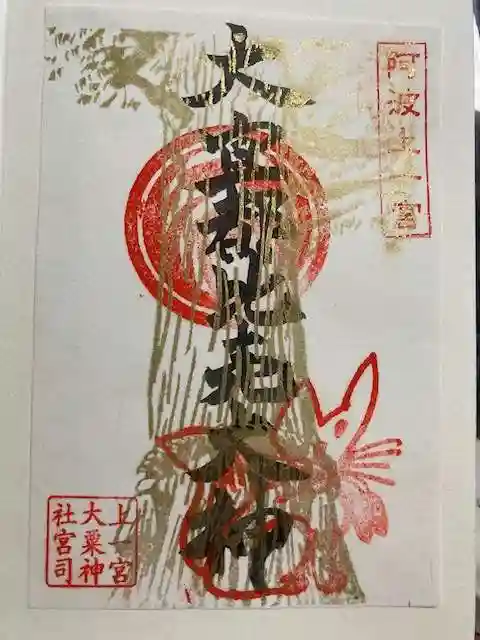 阿波上一宮
大宜都比売大神
上一宮
大粟神
社宮司